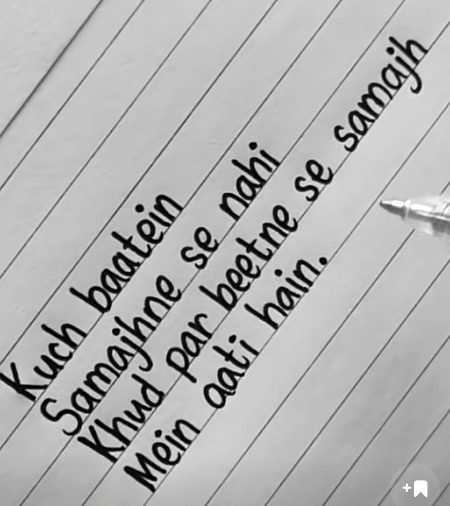 Kuch baatein
Samajhne se nahi
Khud par beetne se samajh
Mein aati hain.